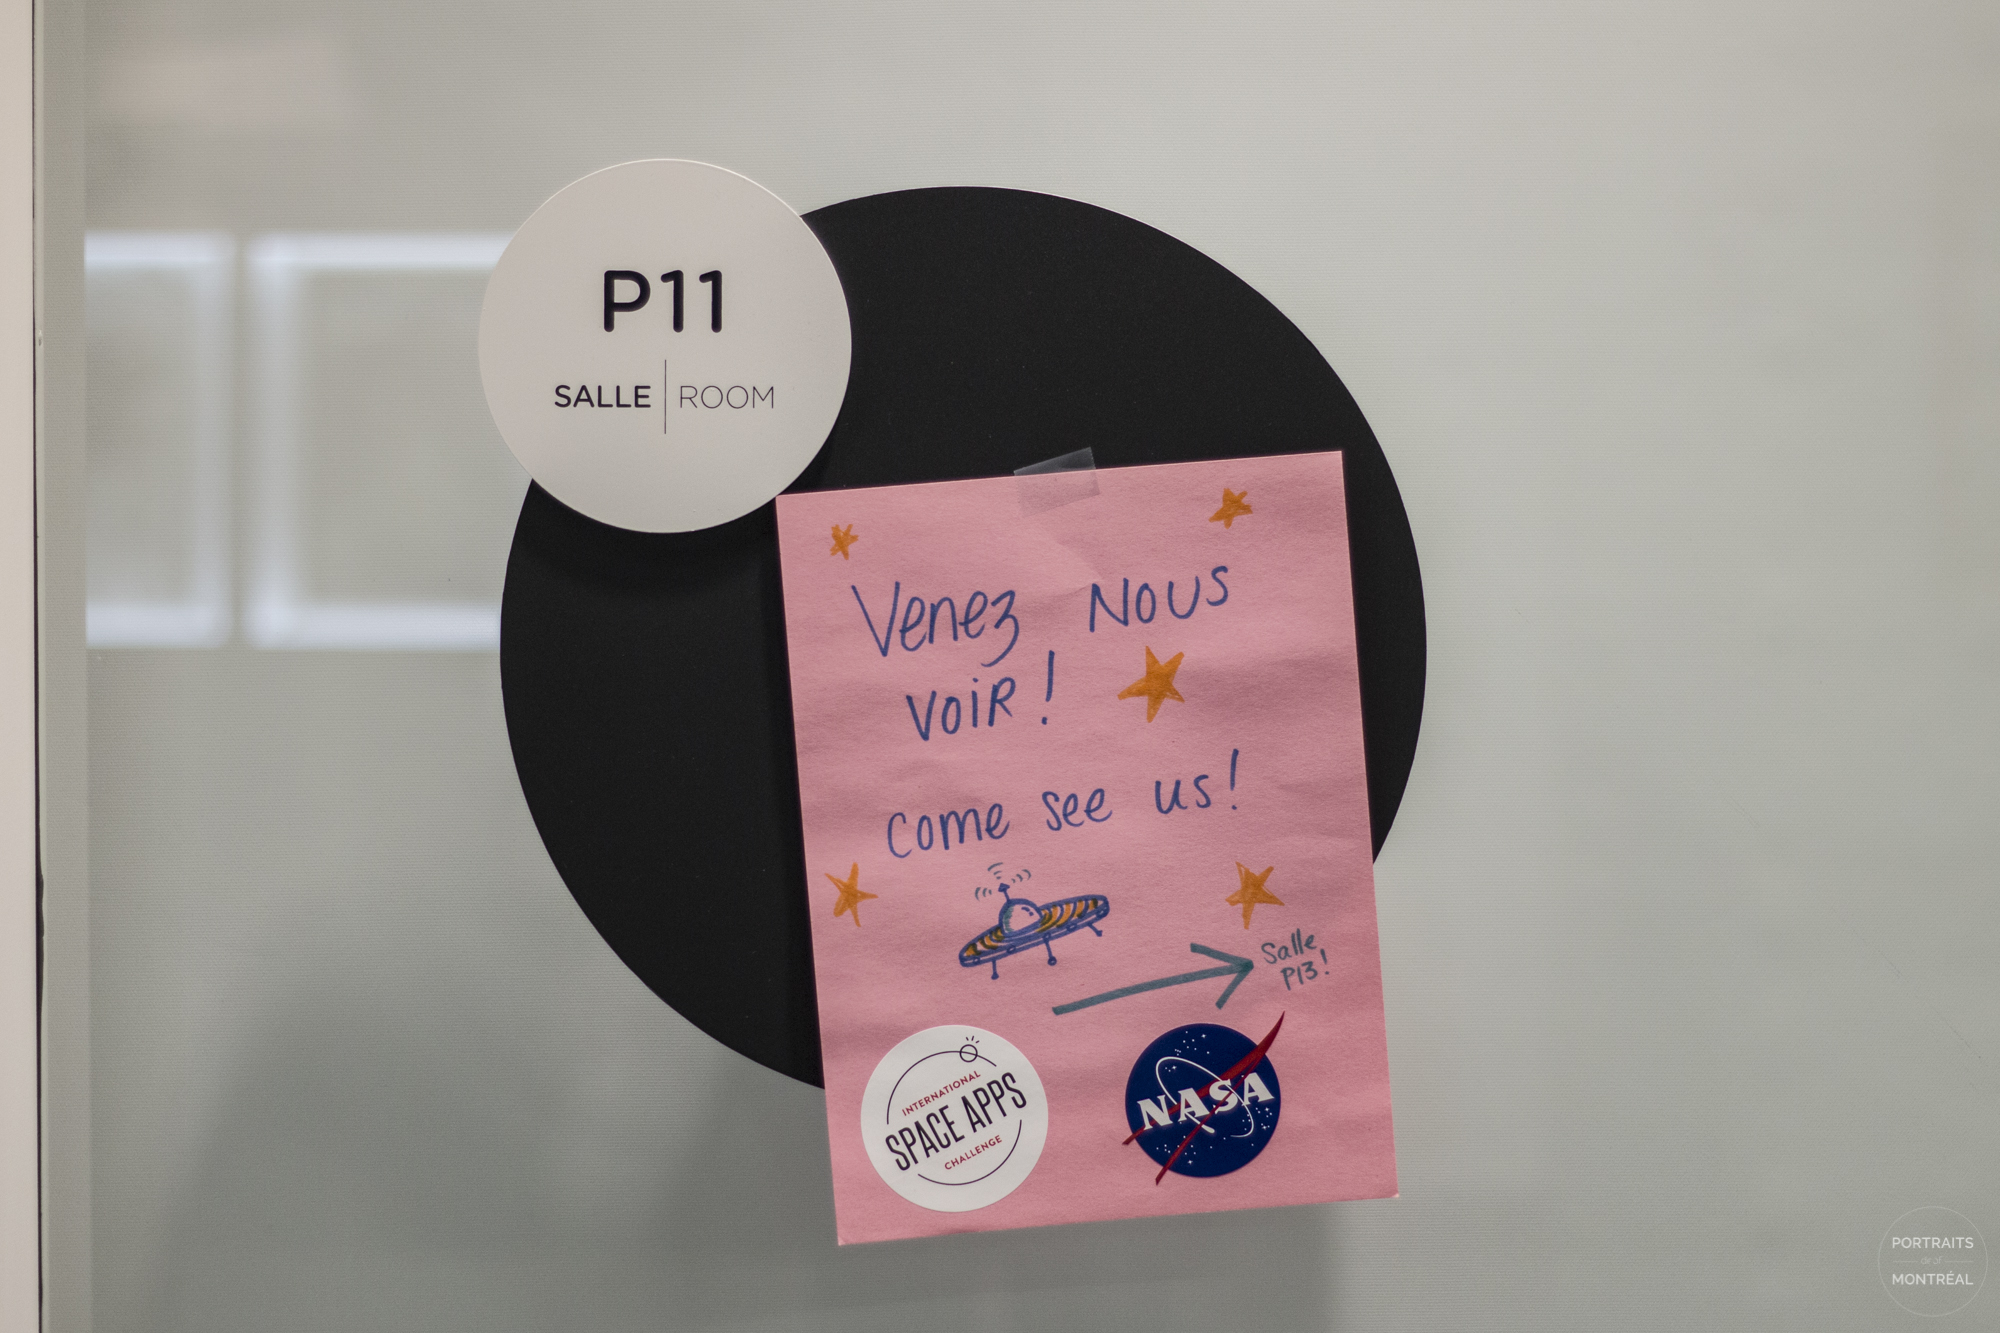 P11
SALLE | ROOM
Venez Nous
voir!
come see us!
Salle
P13!
INTERNATIONAL
SPACE APPS
CHALLENGE
NASA
PORTRAITS
de of
MONTRÉAL